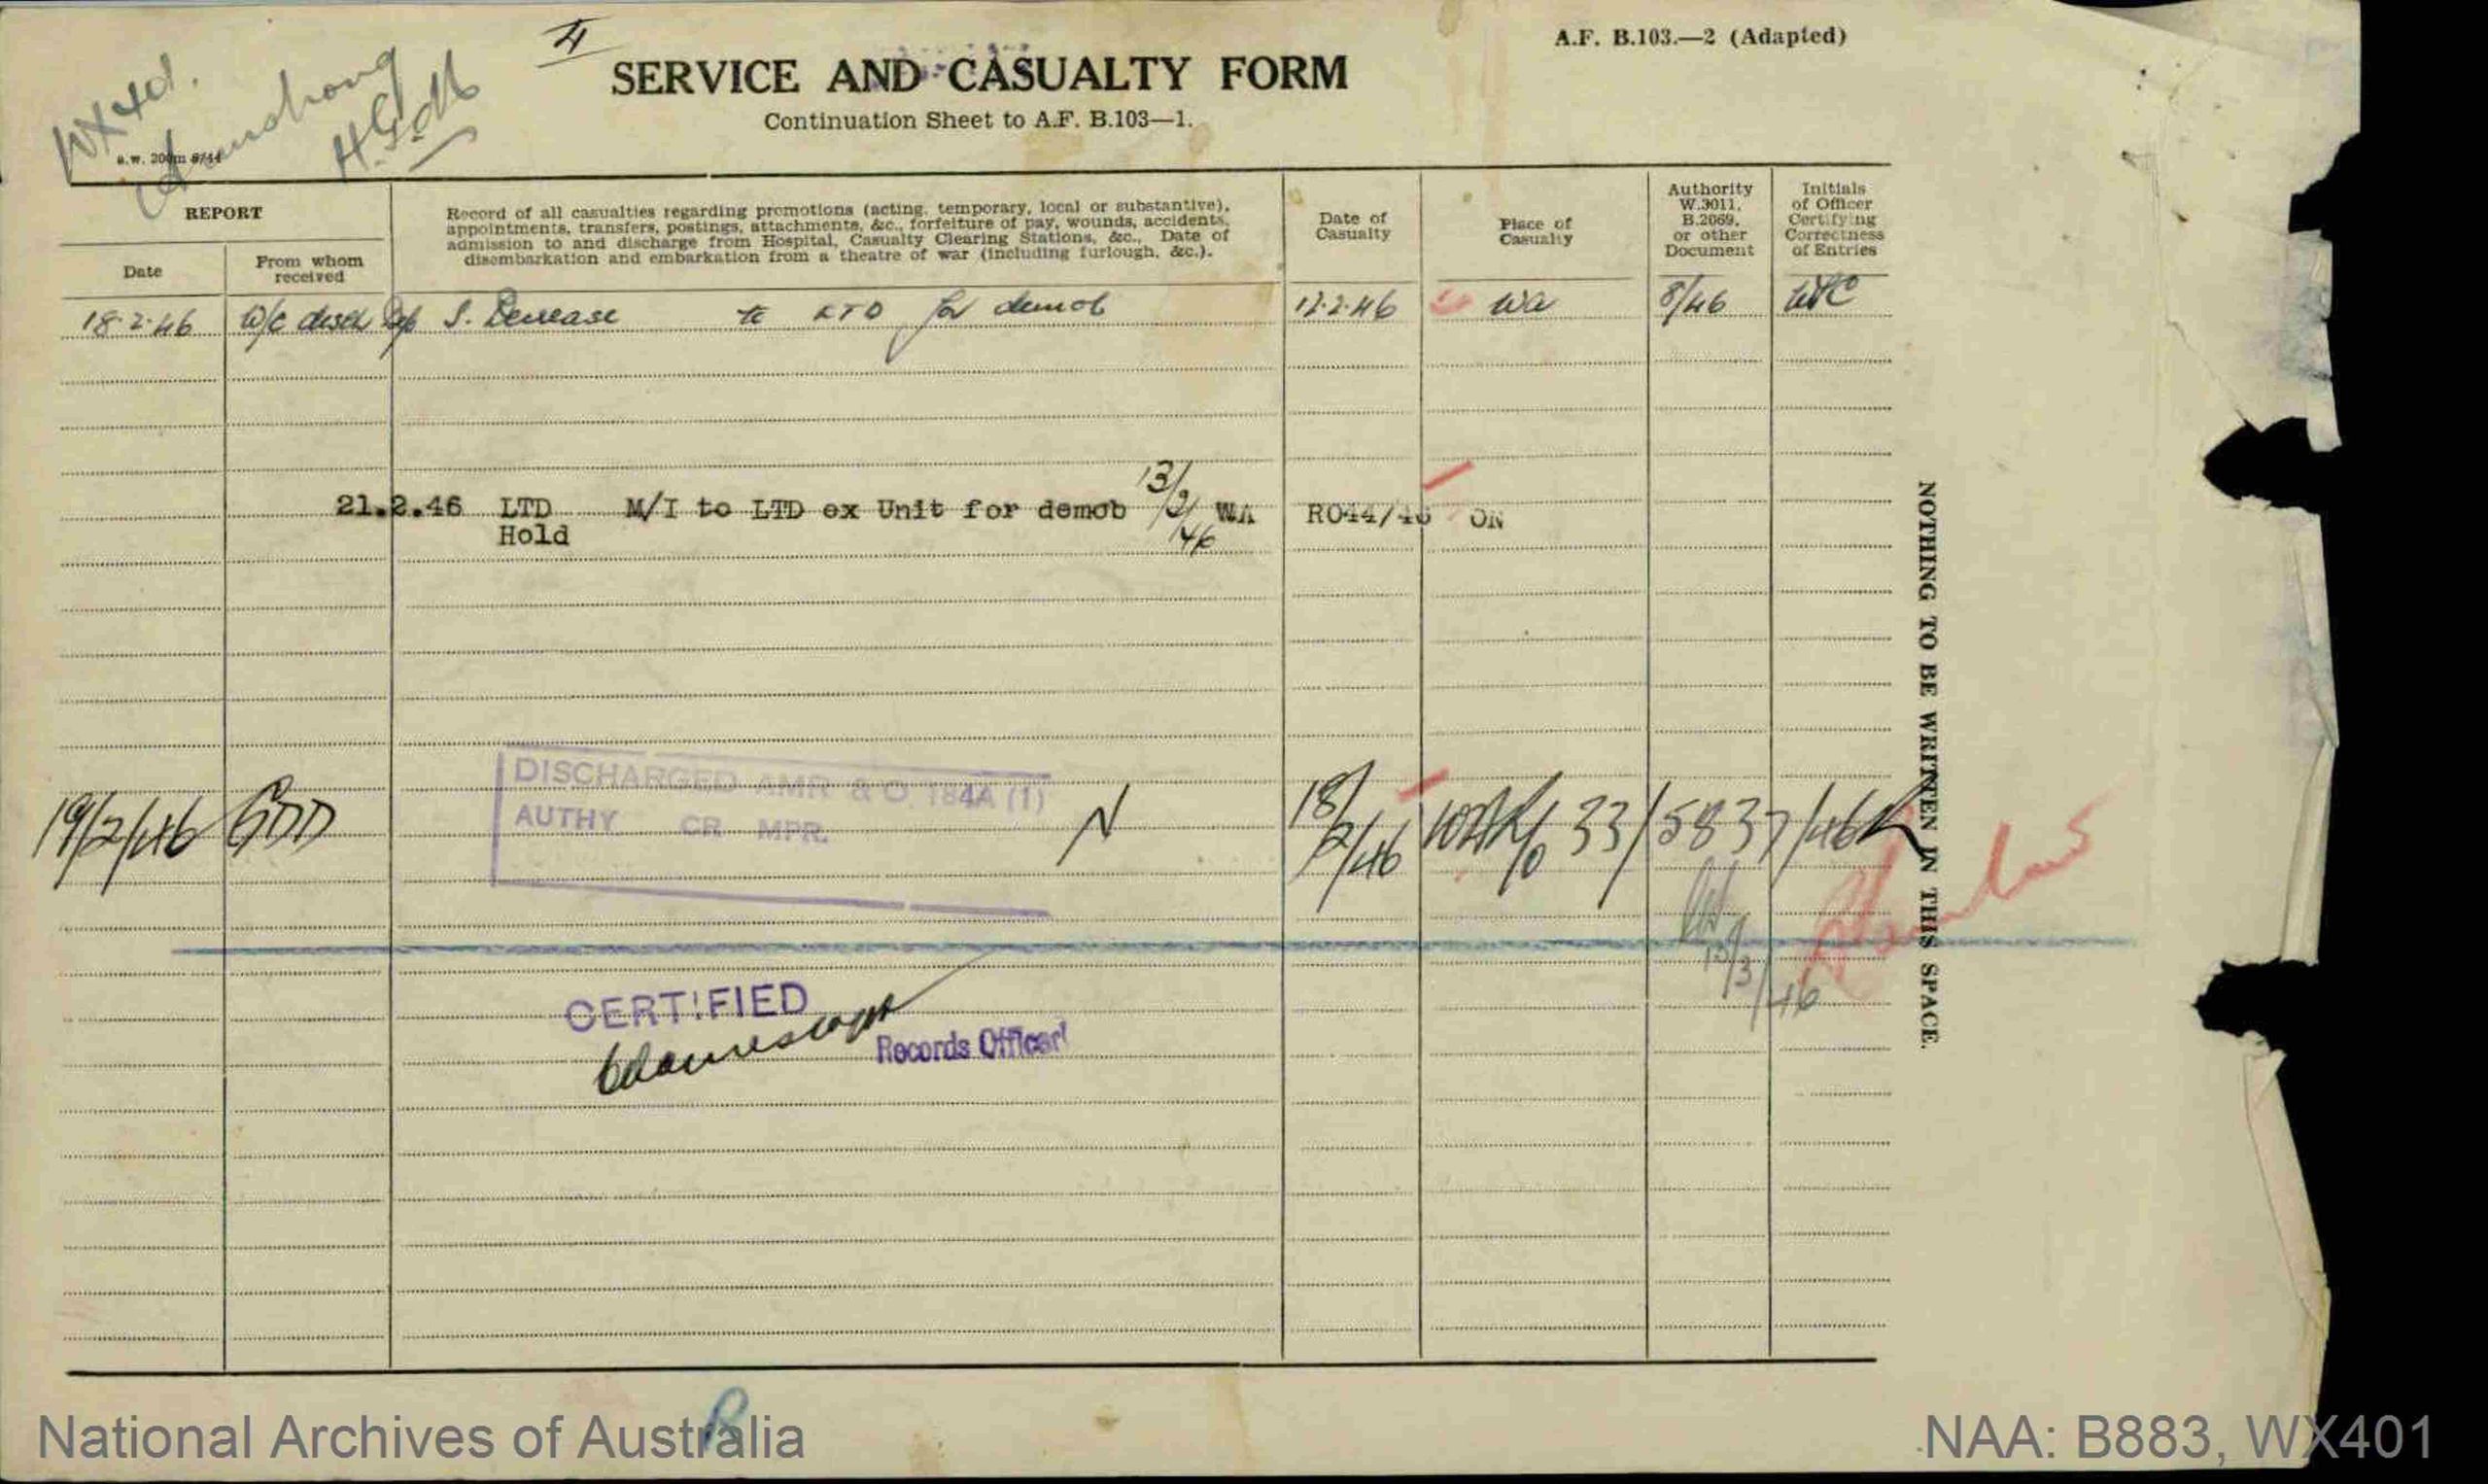 4
A.F. B.103.—2 (Adapted)
SERVICE AND CASUALTY FORM
Continuation Sheet to A.F. B.103—1.
Armstrong
H.G.
REPORT
Date
From whom
received
Record of all casualties regarding promotions (acting, temporary, local or substantive),
appointments, transfers, postings, attachments, &c., forfeiture of pay, wounds, accidents,
admission to and discharge from Hospital, Casualty Clearing Stations, &c., Date of
disembarkation and embarkation from a theatre of war (including furlough, &c.).
Date of
Casualty
Place of
Casualty
Authority
W.3011,
B.2069,
or other
Document
Initials
of Officer
Certifying
Correctness
of Entries
18.2.46 W/C disch Dep S. Decrease to LTD for demob 12.2.46 WA 8/46
21.2.46 LTD M/I to LTD ex Unit for demob 13/2/46 WA RO44/46 ON
Hold
DISCHARGED AMR & O. 184A (1)
AUTHY CR MPR.
19/2/46 GDD N 18/2/46 33/5837/46
13/3/46
CERTIFIED
Records Officer
NOTHING TO BE WRITTEN IN THIS SPACE.
National Archives of Australia
NAA: B883, WX401